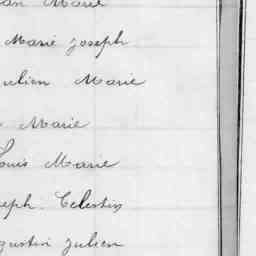 Marie
Marie joseph
Julien Marie
Marie
Louis Marie
Joseph. Celestin
Augustin Julien